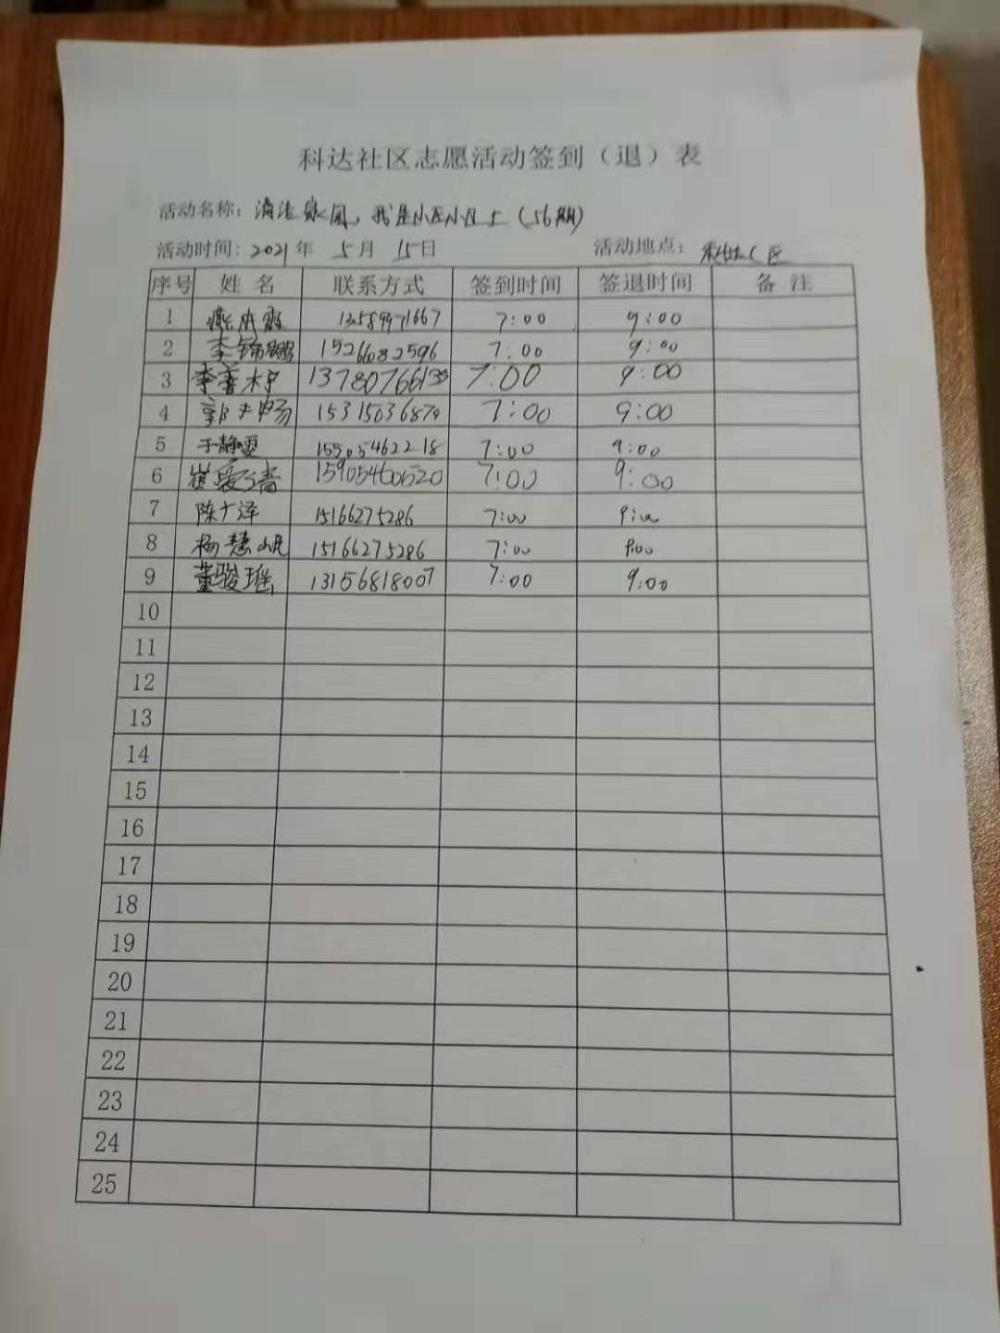 科达社区志愿活动签到（退）表
活动名称：清洁家园，我是小区小卫士（56期）
活动时间：2021年 5月 15日 活动地点：区
序号 姓名 联系方式 签到时间 签退时间 备注
1 7:00 9:00
2 李锦鹏 15266082596 7:00 9:00
3 李善 7:00 9:00
4 郭 15315036879 7:00 9:00
5 于静雯 15505462218 7:00 9:00
6 崔爱清 15905460520 7:00 9:00
7 陈广泽 15166275286 7:00 9:00
8 杨慧岷 15166275286 7:00 9:00
9 董骏瑶 13156818007 7:00 9:00
10
11
12
13
14
15
16
17
18
19
20
21
22
23
24
25